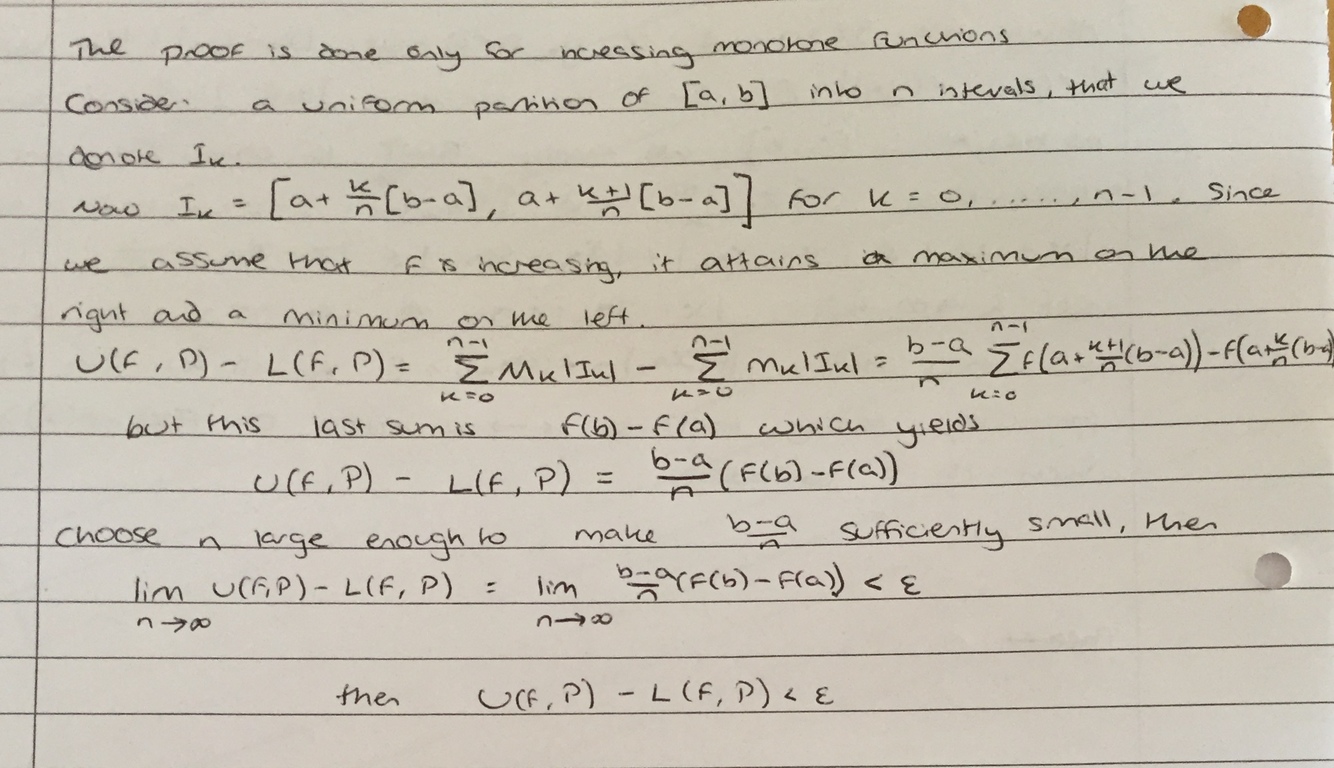 The proof is done only for increasing monotone functions
Consider a uniform partition of [a, b] into n intervals, that we
denote Iₖ.
Now Iₖ = [a + k/n [b-a], a + k+1/n [b-a]] for k = 0, ......, n-1. Since
we assume that f is increasing, it attains a maximum on the
right and a minimum on the left.
U(f, P) - L(f, P) = n-1 Σ k=0 Mₖ|Iₖ| - n-1 Σ k=0 mₖ|Iₖ| = b-a/n n-1 Σ k=0 f(a + k+1/n (b-a)) - f(a + k/n (b-a)
but this last sum is f(b) - f(a) which yields
U(f, P) - L(f, P) = b-a/n (f(b) - f(a))
choose n large enough to make b-a/n sufficiently small, then
lim n→∞ U(f,P) - L(f, P) = lim n→∞ b-a/n (f(b) - f(a)) < ε
then U(f, P) - L(f, P) < ε